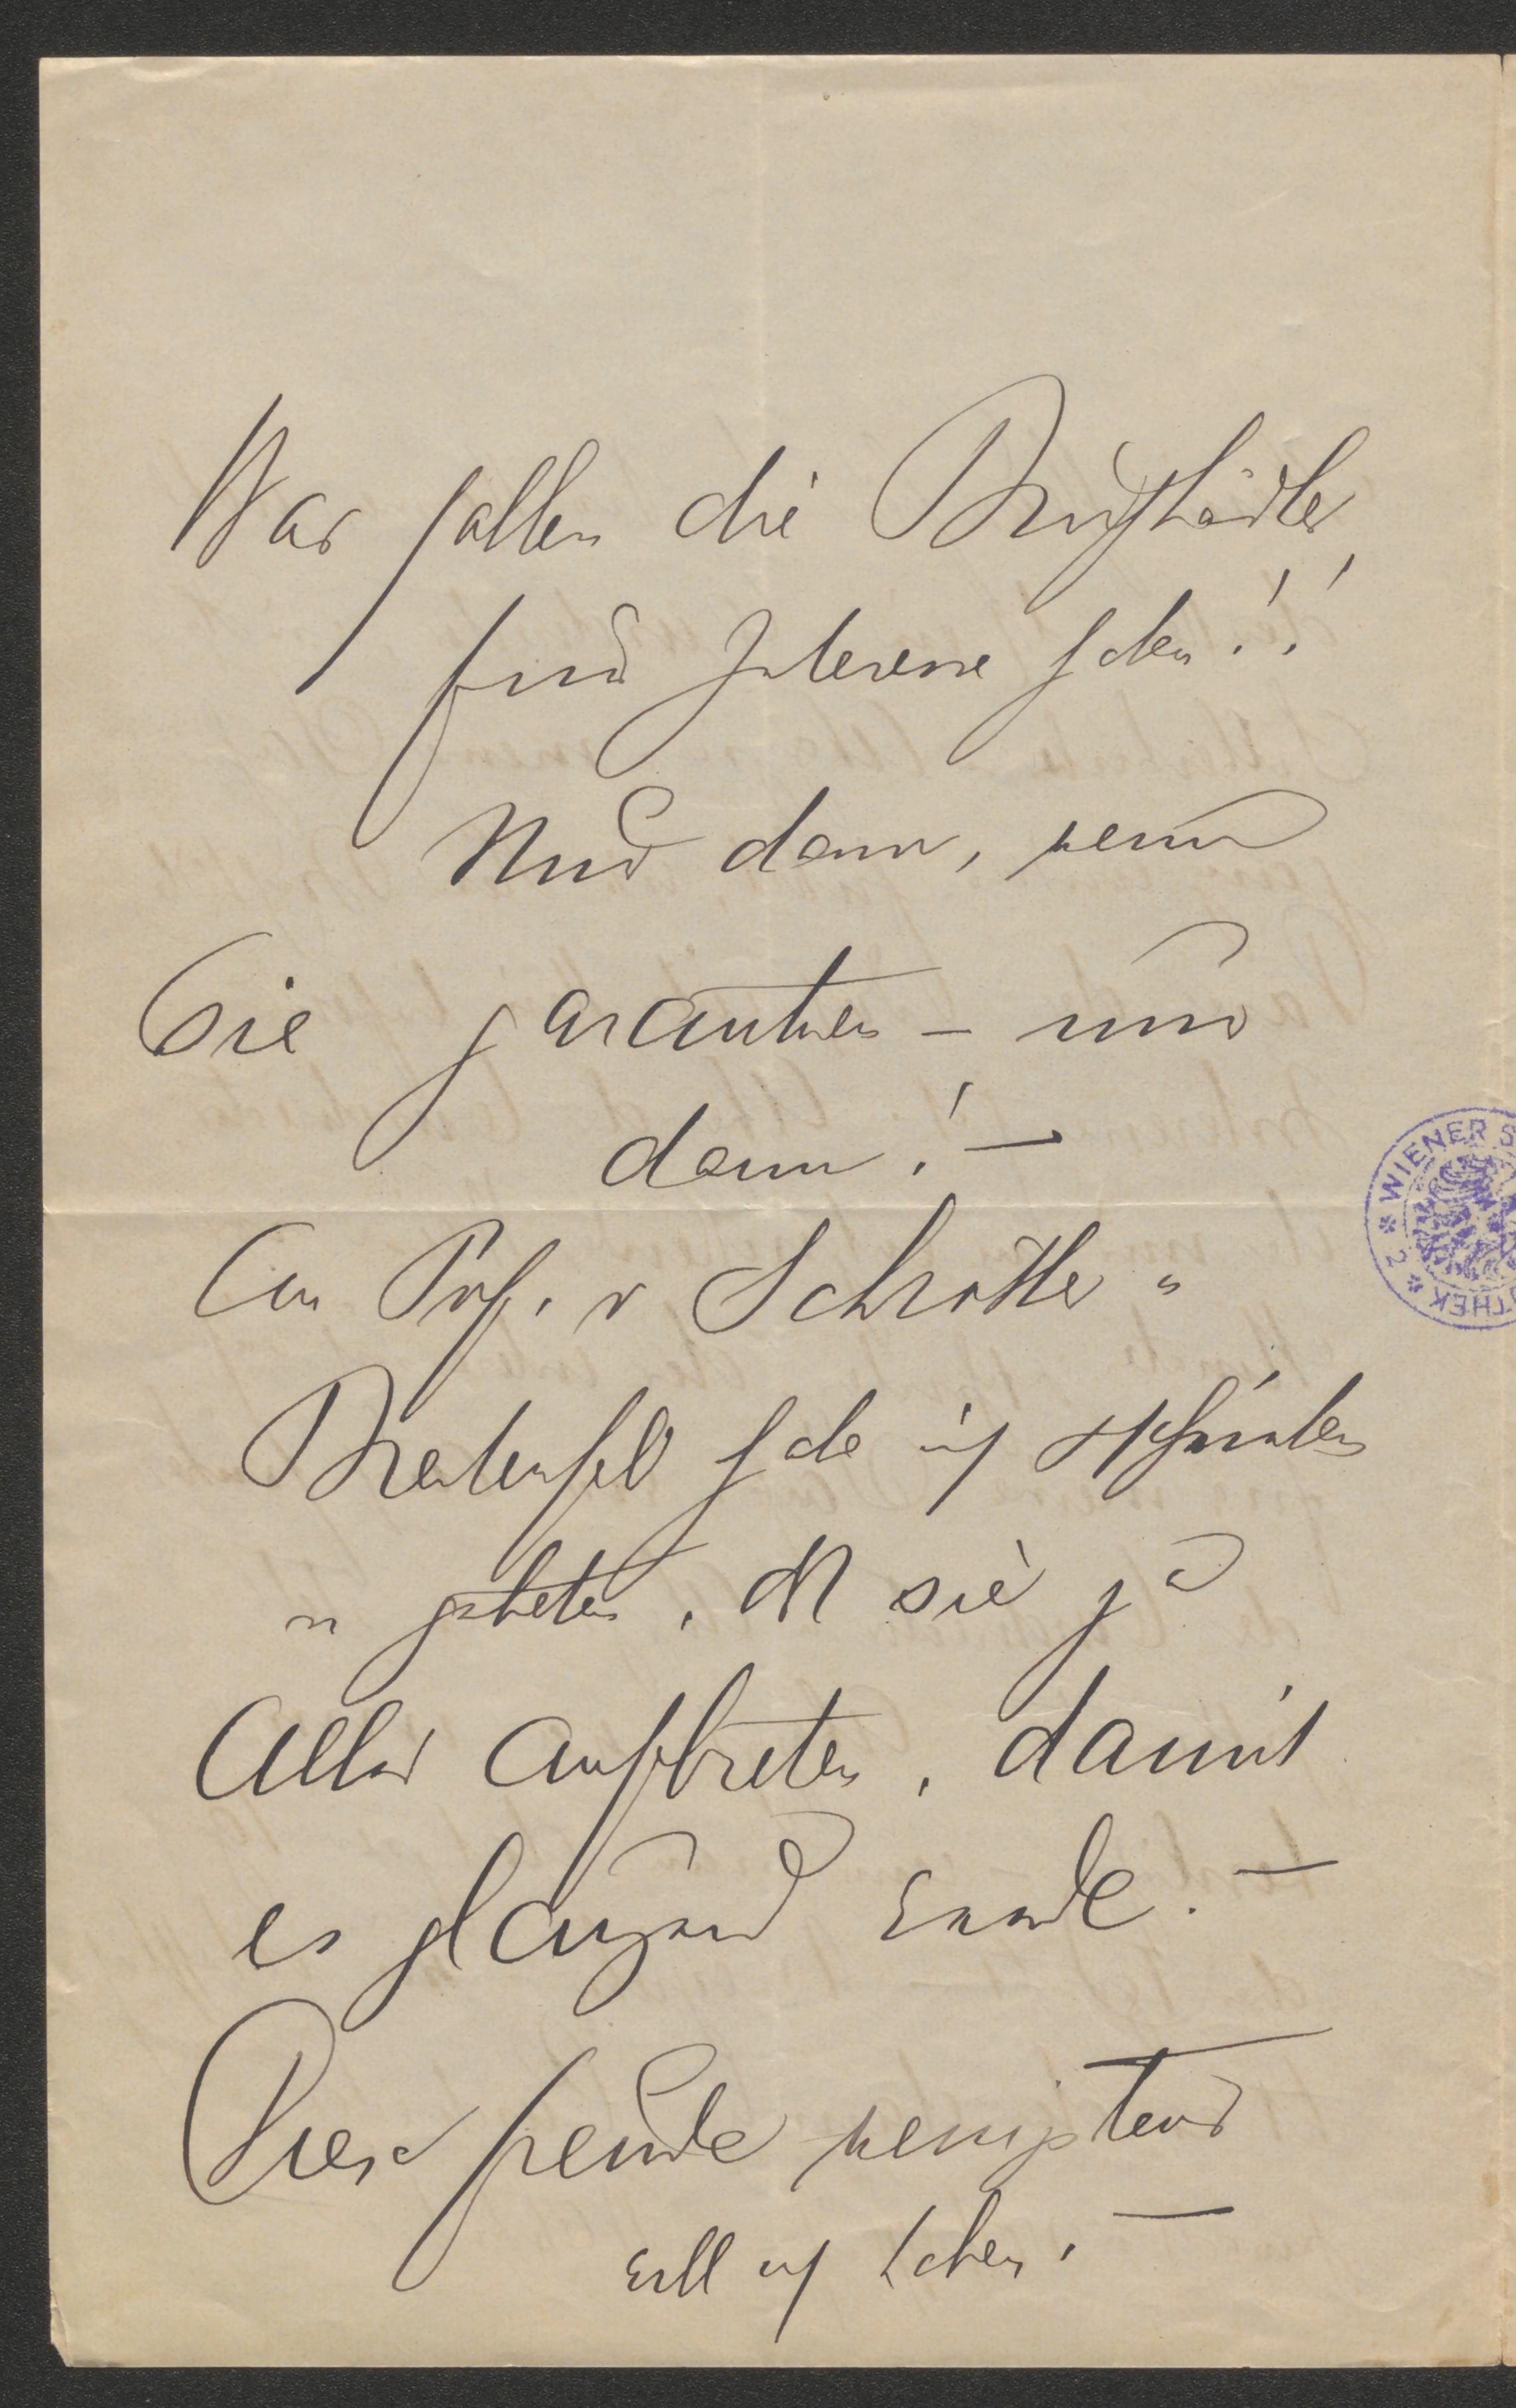 Was sollen die Buchhändler
für Interesse haben!!
Und dann, wenn
Sie garantiren – und
dann! –
An Prof. v Schrötter u
Breitenfeld habe ich geschrieben
u gebeten, daß sie ja
Alles aufbieten, damit
es glänzend werde. –
Diese Freude wenigstens
will ich haben. –
WIENER S
OTHEK * 2 *